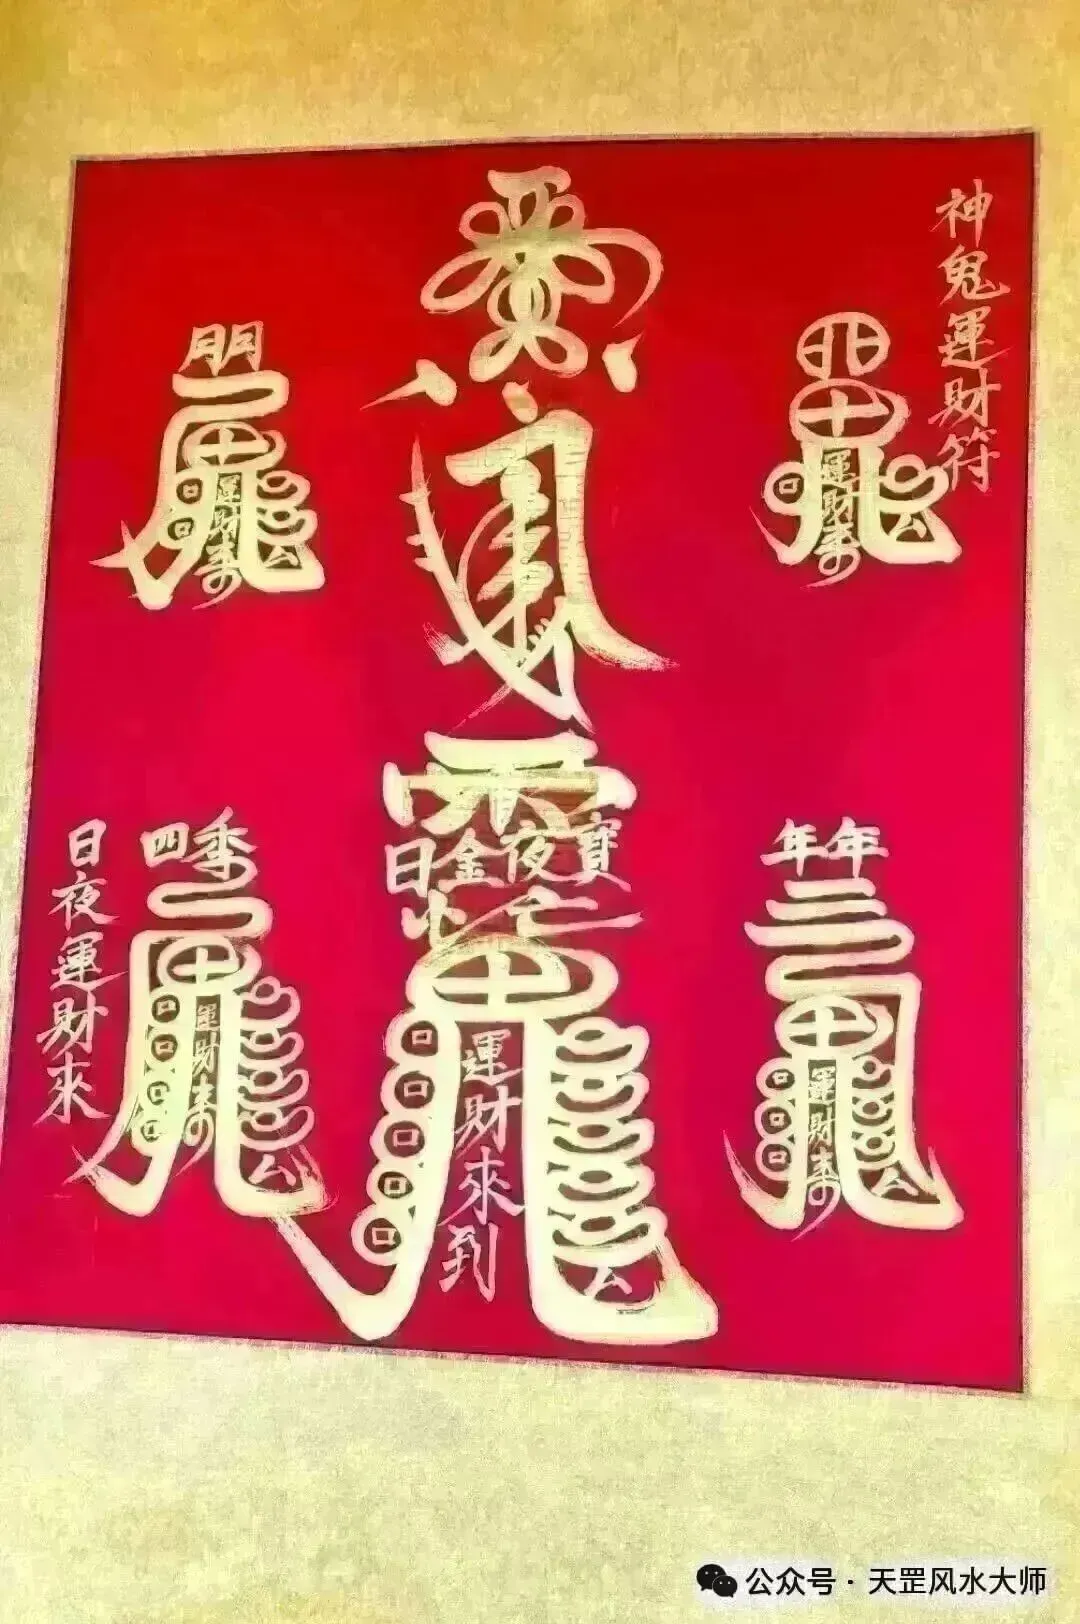 神鬼運財符
北
運財來
門
運財來
日金夜寶
運財來到
年年
運財來
四季
運財來
日夜運財來
公众号 · 天罡风水大师